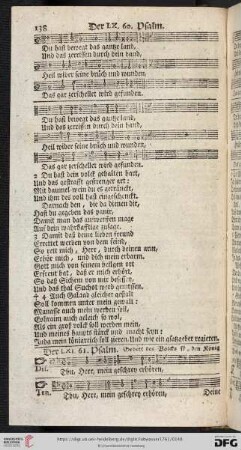 138 Der LX. 60. Psalm.
Du hast bewegt das gantze land,
Und das zerrissen durch dein hand.
Heil wider seine brüch und wunden,
Das gar zerschellet wird gefunden.
Du hast bewegt das gantze land,
Und das zerrissen durch dein hand,
Heil wider seine brüch und wunden,
Das gar zerschellet wird gefunden.
2 Du hast dein volck gehalten hart,
Und das gestrafft gestrenger art:
Mit daumel-wein du es geträncket,
Und ihm des voll hast eingeschencket.
Darnach den, die da dienen dir,
Hast du gegeben das panir,
Damit man das auffwerffen möge
Auf dein wahrhafftige zusage.
3 Damit das deine lieben freund
Errettet werden von dem feind,
So reit mich, Herr, durch deinen arm,
Erhör mich, und dich mein erbarm.
Gott mich von seinem heilgen ort
Erfreut hat, daß er mich erhört.
So daß Sichem von mir besessen,
Und das thal Suchot werd gemessen.
† 4 Auch Gilead gleicher gestalt
Soll kommen unter mein gewalt:
Manasse auch mein werden soll,
Ephraim auch gleich so wol,
Als ein gut volck soll werden mein,
Und meines haupts stärck und macht seyn:
Juda mein königreich soll zieren,
Der LXI. 61. Psalm.
Thu, Herr, mein geschrey erhören,
Ten. Thu, Herr, mein geschrey erhören, Deine
DFG